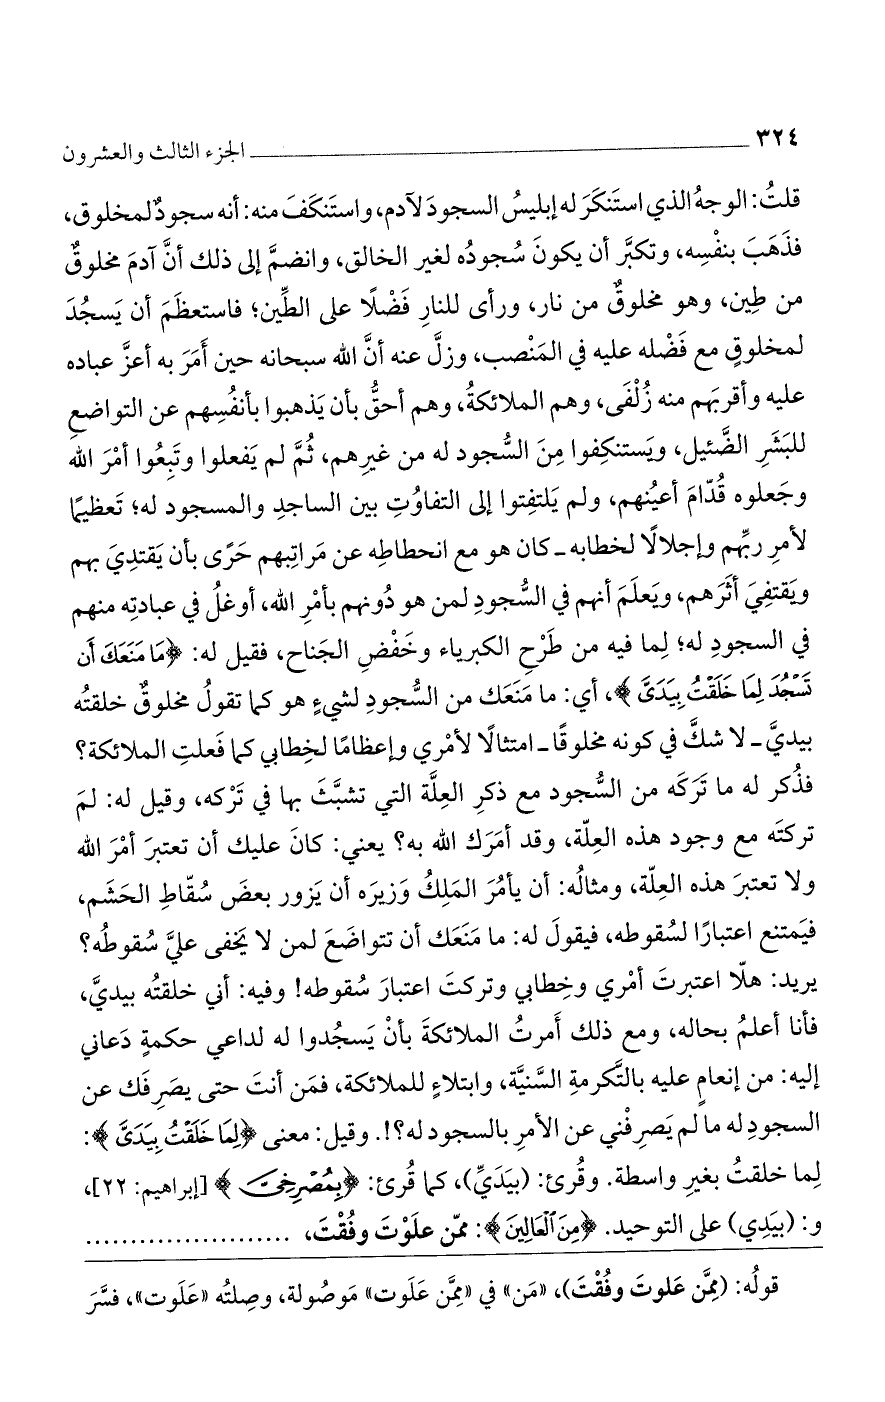 ٣٢٤ ـــــــــــــــــــــــ الجزء الثالث والعشرون
قلتُ: الوجهُ الذي استَنكَرَ له إبليسُ السجودَ لآدم، واستَنكَفَ منه: أنه سجودٌ لمخلوق،
فذَهَبَ بنفْسِه، وتكبَّر أن يكونَ سُجودُه لغير الخالق، وانضمَّ إلى ذلك أنَّ آدمَ مخلوقٌ
من طِين، وهو مخلوقٌ من نار، ورأى للنارِ فَضْلًا على الطِّين؛ فاستعظَمَ أن يَسجُدَ
لمخلوقٍ مع فَضْله عليه في المَنْصب، وزلَّ عنه أنَّ الله سبحانه حين أمَرَ به أعزَّ عباده
عليه وأقربَهم منه زُلْفَى، وهم الملائكةُ، وهم أحقُّ بأن يَذهبوا بأنفُسِهم عن التواضعِ
للبَشَرِ الضَّئيل، ويَستنكِفوا مِنَ السُّجود له من غيرِهم، ثُمَّ لم يَفعلوا وتَبِعُوا أمْرَ الله
وجَعلوه قُدّامَ أعيُنهم، ولم يَلتفِتوا إلى التفاوُتِ بين الساجدِ والمسجود له؛ تَعظيمًا
لأمرِ ربِّهم وإجلالًا لخطابه ـ كان هو مع انحطاطِه عن مَراتِبهم حَرًى بأن يَقتدِيَ بهم
ويَقتفِيَ أثَرَهم، ويَعلَمَ أنهم في السُّجودِ لمن هو دُونهم بأمْرِ الله، أوغلُ في عبادتِه منهم
في السجودِ له؛ لِما فيه من طَرْحِ الكبرياء وخَفْضِ الجَناح، فقيل له: ﴿مَا مَنَعَكَ أَن
تَسْجُدَ لِمَا خَلَقْتُ بِيَدَىَّ﴾، أي: ما مَنَعَك من السُّجودِ لشيءٍ هو كما تقولُ مخلوقٌ خلقتُه
بيديَّ ـ لا شكَّ في كونه مخلوقًا ـ امتثالًا لأمْري وإعظامًا لخِطابي كما فَعلتِ الملائكة؟
فذُكر له ما تَرَكَه من السُّجود مع ذكرِ العِلَّة التي تشبَّثَ بها في تَرْكه، وقيل له: لمَ
تركتَه مع وجود هذه العِلّة، وقد أمَرَك الله به؟ يعني: كانَ عليك أن تعتبرَ أمْرَ الله
ولا تعتبرَ هذه العِلّة، ومثالُه: أن يأمُرَ المَلِكُ وَزيرَه أن يَزور بعضَ سُقّاطِ الحَشَم،
فيَمتنع اعتبارًا لسُقوطه، فيقولَ له: ما مَنَعَك أن تتواضَعَ لمن لا يَخفى عليَّ سُقوطُه؟
يريد: هلّا اعتبرتَ أمْري وخِطابي وتركتَ اعتبارَ سُقوطه! وفيه: أني خلقتُه بيديَّ،
فأنا أعلمُ بحاله، ومع ذلك أَمرتُ الملائكةَ بأنْ يَسجُدوا له لداعي حكمةٍ دَعاني
إليه: من إنعامٍ عليه بالتَّكرمةِ السَّنيَّة، وابتلاءٍ للملائكة، فمَن أنتَ حتى يصَرِفَك عن
السجودِ له ما لم يَصرِفْني عن الأمرِ بالسجود له؟!. وقيل: معنى ﴿لِمَا خَلَقْتُ بِيَدَىَّ﴾:
لِما خلقتُ بغيرِ واسطة. وقُرئ: (بيَدَيِّ)، كما قُرئ: ﴿بِمُصْرِخِىَّ﴾ [إبراهيم: ٢٢]،
و: (بيَدِي) على التوحيد. ﴿مِنَ ٱلْعَالِينَ﴾: ممّن علَوْتَ وفُقْتَ، ......................
قولُه: (مِمَّن عَلوتَ وفُقْتَ)، «مَن» في «مِمَّن عَلَوت» مَوصُولة، وصِلتُه «عَلَوت»، فسَّرَ